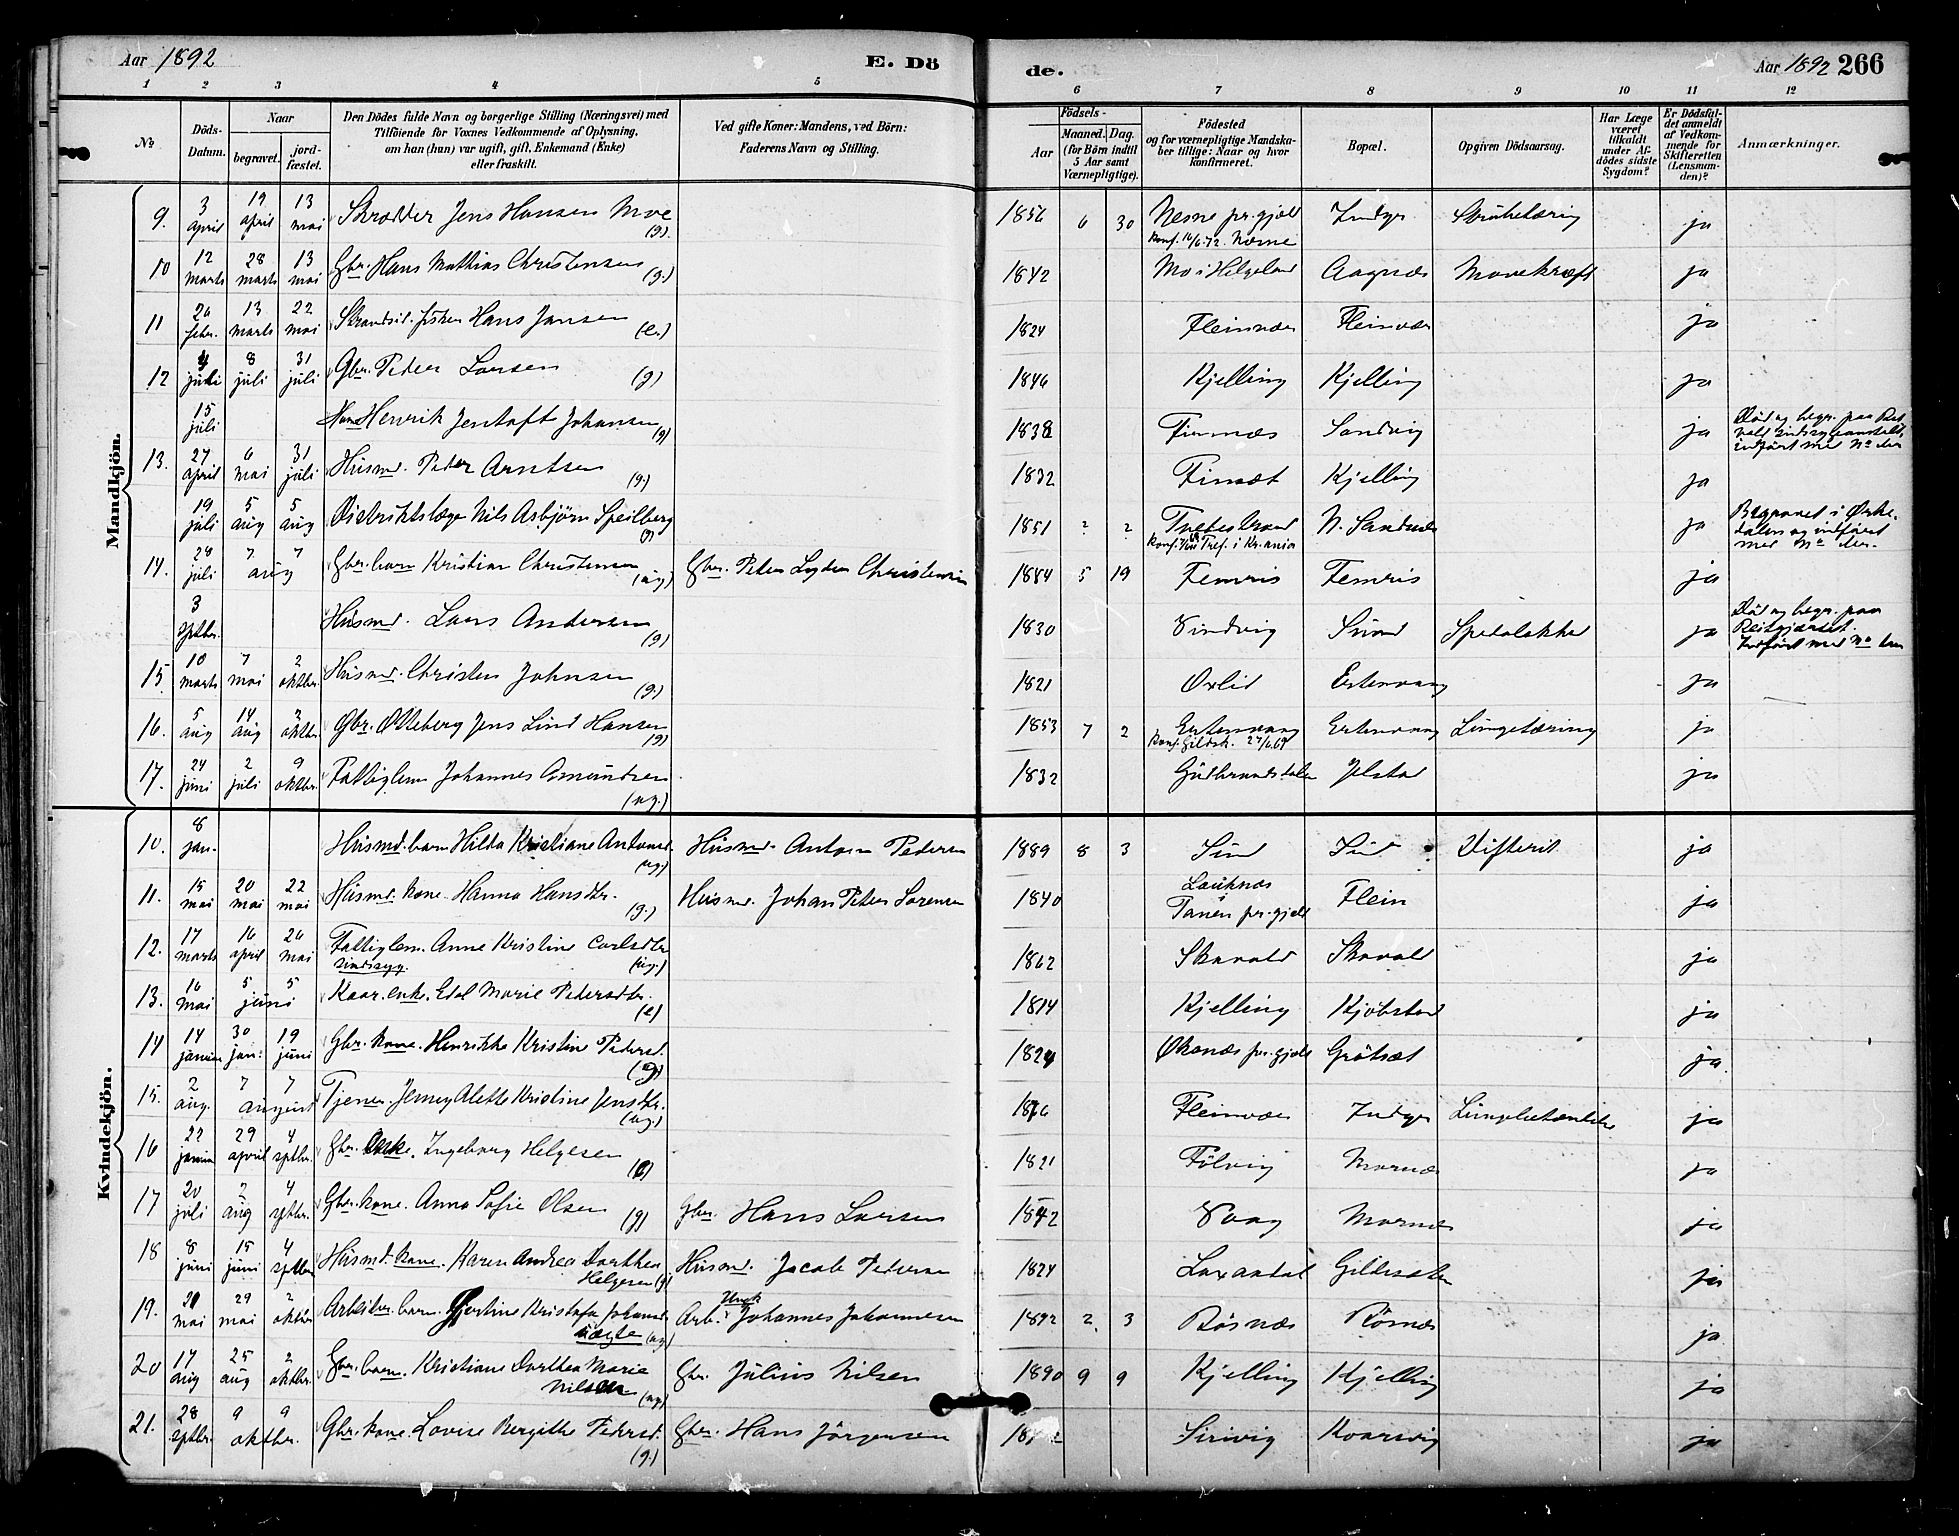 Aar 1892
E. Dö
de.
Aar 1892 266
1 2 3 4 5 6 7 8 9 10 11 12
No.
Döds-Datum.
Naar
begravet.
jord-fæstet.
Den Dödes fulde Navn og borgerlige Stilling (Næringsvei) med
Tilföiende for Voxnes Vedkommende af Oplysning,
om han (hun) var ugift, gift, Enkemand (Enke)
eller fraskilt.
Ved gifte Koner: Mandens, ved Börn:
Faderens Navn og Stilling.
Födsels-
Aar
Maaned. Dag.
(for Börn indtil
5 Aar samt
Værnepligtige).
Födested
og for værnepligtige Mandska-
ber tillige: Naar og hvor
konfirmeret.
Bopæl.
Opgiven Dödsaarsag.
Har Læge
været
tilkaldt
under Af-
dödes sidste
Sygdom?
Er Dödsfal-
det anmeldt
af Vedkom-
mende for
Skifteretten
(Lensman-
den)?
Anmærkninger.
Mandkjön.
9. 3 april 19 april 13 mai Skrædder Jens Hansen Moe (g). 1856 6 30 Nesne pr.gjeld Indyr ja
Konf. 16/6 72. Næsne
10 12 marts 28 marts 13 mai Gbr. Hans Mathias Christensen (g.) 1842 Mo i Helgeland Aagnæs Mavekræft ja
11 26 febr. 13 marts 22 mai Hans Jansen (e.) 1824 Fleinvær Fleinvær ja
12 juli 8 juli 31 juli Gbr. Peder Larsen (g) 1846 Kjelling Kjelling ja
15 juli Henrik Jentoft Johansen (g) 1838 Finnæs Sandvig ja Död og begr. paa
indfört med No der
13. 27 april 6 mai 31 juli Husmd. Peder Arntsen (g.) 1832 Finsæt Kjelling ja
19 juli 5 aug 5 aug Distriktslæge Nils Asbjörn Speilberg (g) 1851 ? ? N. Sandnæs ja Begravet i Orke-
dalen og indfört
med No der.
14. 28 juli 7 7 aug Gbr. barn Kristian Christensen (ug) Gbr. Peter Christensen 1884 5 19 Femris Femris ja
3 septbr. Husmd. Lars Andersen (g) 1830 Sindvig Sund Spedalskhed ja Död og begr. paa
Reitgjærdet.
Indfört med No der
15. 10 marts 7 mai 2 oktbr. Husmd. Christen Johnsen (g.) 1821 Oxlid Ertenvaag ja
16. 5 aug 14 aug 2 oktbr. Gbr. Jens Lind Hansen (g) 1853 7 2 Ertenvaag Ertenvaag Lungetæring ja
Konf. Gildsk. 27/6 69
17. 24 juni 2 juli 9 oktbr. Fattiglem Johannes Amundsen (ug.) 1832 Gudbrandsdalen ja
Kvindekjön.
10. 8 jan. Husmd. barn Hilda Kristiane Antonsd. (ug) Husmd. Anton Pedersen 1889 8 3 Sund Sund Difterit ja
11. 15 mai 20 mai 22 mai Husmd. kone Hanna Hansdtr. (g.) Husmd. Johan Peter Sörensen 1840 Flein ja
Tanen pr.gjeld
12. 17 marts 16 april 26 mai Fattiglem. Anne Kristine Carlsdtr (ug.) 1862 Skavold Skavold ja
sindssyg.
13. 16 mai 5 5 juni Kaar.enke. Edel Marie Pedersdtr. (e) 1814 Kjelling Kjöbstad ja
14 14 januar 30 jan: 19 juni Gbr. kone. Henrikke Kristine Pedersd. (g) 1824 Öksnæs pr.gjeld Grötsæt ja.
15. 2 aug. 7 7 august Tjener. Jenny Alette Kristine Jensdtr. (ug.) Fleinvær Indyr ja
16 22 januar 29 april 4 septbr. Gbr. Enke. Ingeborg Helgesen (e) 1821 Fölvig Mornæs ja
17 20 juli 2 aug 4 septbr. Gbr. kone. Anna Sofie Olsen (g) Gbr. Hans Larsen 1842 Vaag Mornæs ja
18 8 juni 15 juni 4 septbr Husmd. kone. Karen Andrea Dorthea Helgesen (g) Husmd. Jacob Pedersen 1824 Laxaadal ja
19. 21 mai 29 mai 2 oktbr Arbeider. barn. Kristofa Johannsd. uægte (ug) Arb. Ungk. Johannes Johannesen 1892 2 3 Rösnæs Rösnæs ja
20 17 aug 25 aug 2 oktbr. Gbr. barn. Kristiane Dorthea Marie Nilsen (ug) Gbr. Julius Nilsen 1890 9 9 Kjelling Kjelling ja
21. 28 septbr. 9 9 oktbr. Gbr. kone. Lovise Bergithe Pedersd. (g.) Gbr. Hans Jörgensen Sirivig Kvarsvig ja